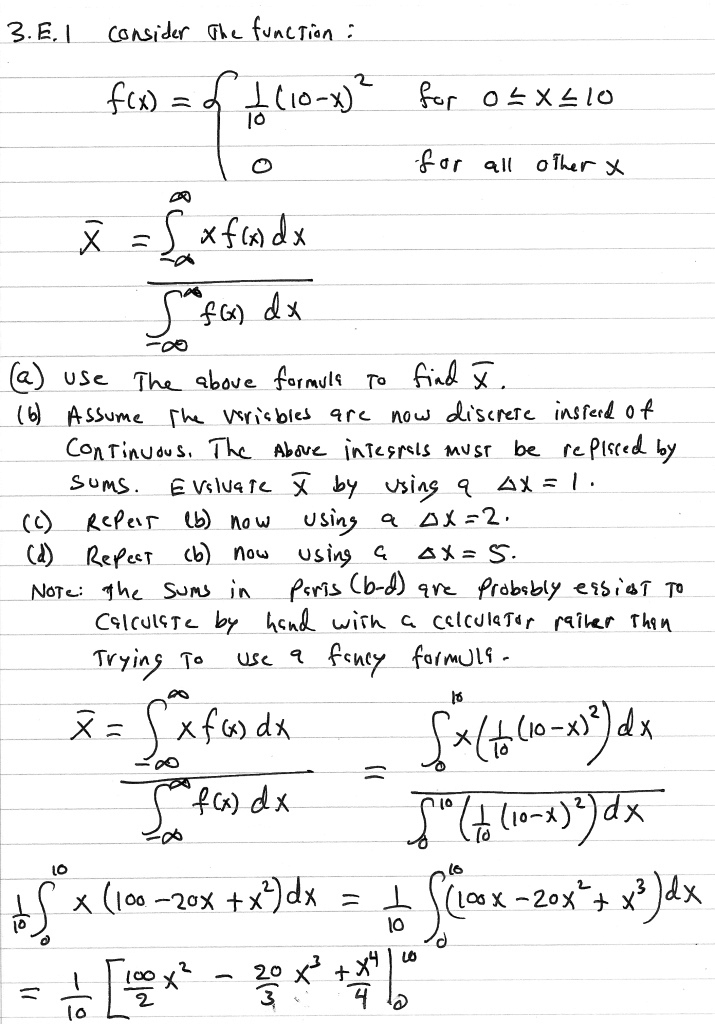 3.E.1 Consider the function :
f(x) = { 1/10 (10-x)² for 0 ≤ x ≤ 10
0 for all other x
x̄ = ∫_{-∞}^{∞} x f(x) dx / ∫_{-∞}^{∞} f(x) dx
(a) Use the above formula to find x̄.
(b) Assume the variables are now discrete instead of
continuous. The above integrals must be replaced by
sums. Evaluate x̄ by using a Δx = 1.
(c) Repeat (b) now using a Δx = 2.
(d) Repeat (b) now using a Δx = 5.
Note: The sums in parts (b-d) are probably easiest to
calculate by hand with a calculator rather than
trying to use a fancy formula.
x̄ = ∫_{-∞}^{∞} x f(x) dx / ∫_{-∞}^{∞} f(x) dx = ∫_0^{10} x(1/10 (10-x)²) dx / ∫_0^{10} (1/10 (10-x)²) dx
1/10 ∫_0^{10} x (100 - 20x + x²) dx = 1/10 ∫_0^{10} (100x - 20x² + x³) dx
= 1/10 [ 100/2 x² - 20/3 x³ + x⁴/4 |_0^{10}